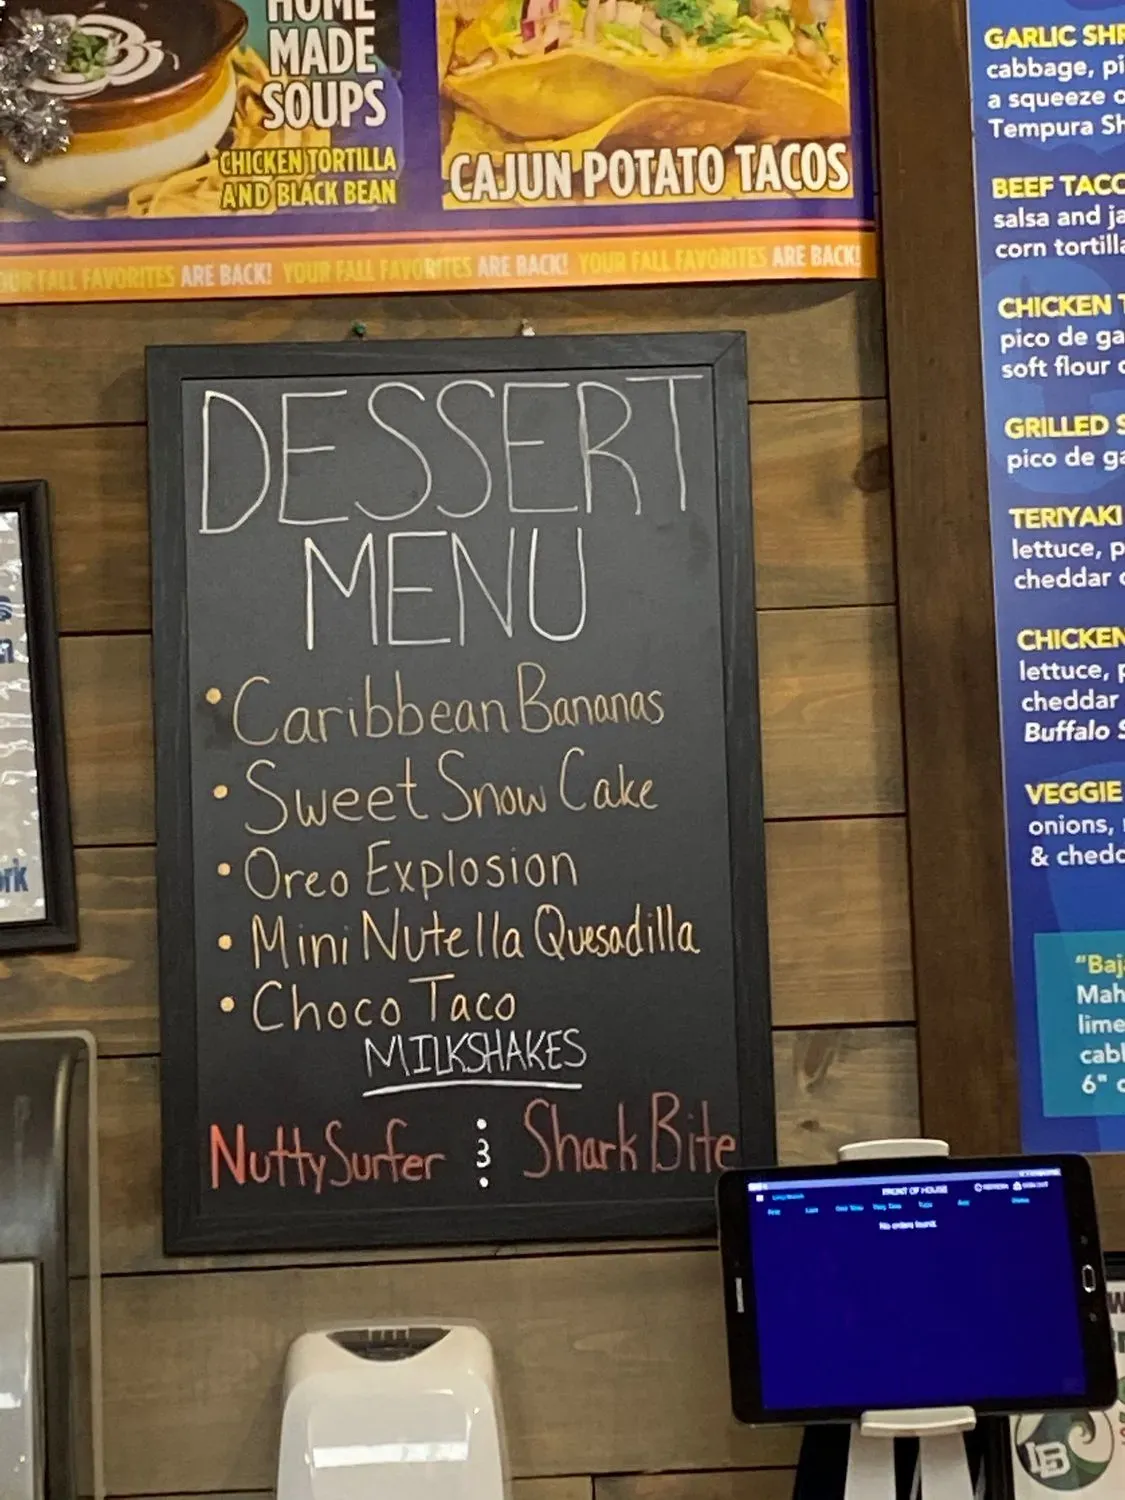 HOME
MADE
SOUPS
CHICKEN TORTILLA
AND BLACK BEAN
CAJUN POTATO TACOS
YOUR FALL FAVORITES ARE BACK! YOUR FALL FAVORITES ARE BACK! YOUR FALL FAVORITES ARE BACK!
DESSERT
MENU
• Caribbean Bananas
• Sweet Snow Cake
• Oreo Explosion
• Mini Nutella Quesadilla
• Choco Taco
MILKSHAKES
Nutty Surfer & Shark Bite
GARLIC SHR
cabbage, pi
a squeeze o
Tempura Sh
BEEF TACO
salsa and ja
corn tortilla
CHICKEN T
pico de ga
soft flour
GRILLED S
pico de ga
TERIYAKI
lettuce, p
cheddar
CHICKEN
lettuce, p
cheddar
Buffalo S
VEGGIE
onions,
& chedd
"Baj
Mah
lime
cabb
6"
FRONT OF HOUSE
No orders found.
ork
LB